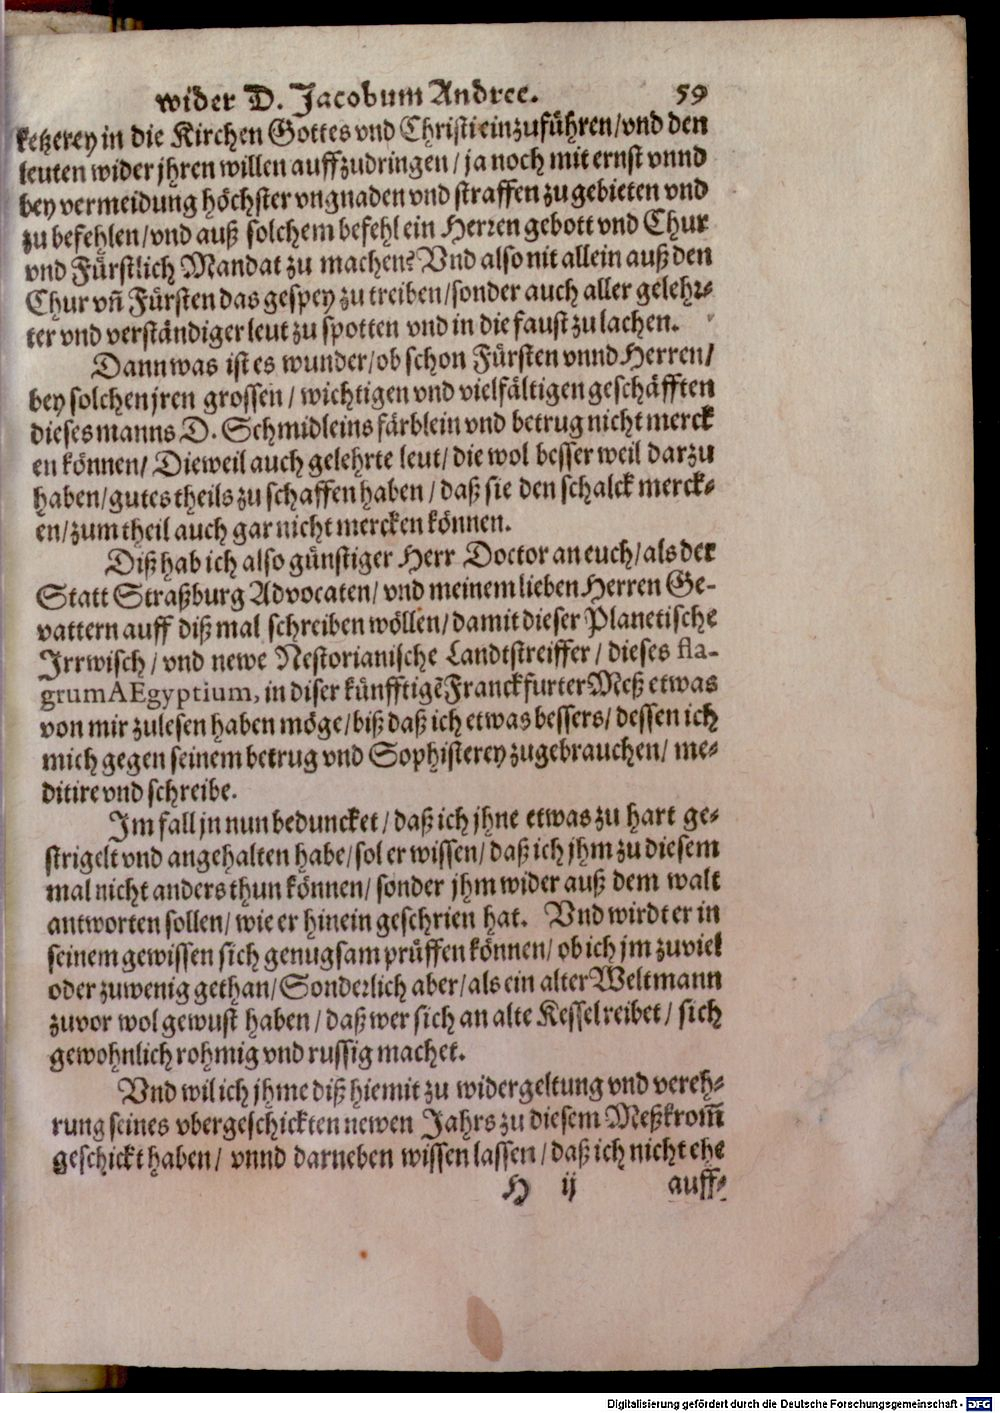 wider D. Jacobum Andree. 59
ketzerey in die Kirchen Gottes vnd Christi einzuführen/vnd den
leuten wider jhren willen auffzudringen/ ja noch mit ernst vnnd
bey vermeidung höchster vngnaden vnd straffen zu gebieten vnd
zu befehlen/vnd auß solchem befehl ein Herren gebott vnd Chur
vnd Fürstlich Mandat zu machen? Vnd also nit allein auß den
Chur vñ Fürsten das gespey zu treiben/sonder auch aller gelehr-
ter vnd verständiger leut zu spotten vnd in die faust zu lachen.
Dann was ist es wunder/ob schon Fürsten vnnd Herren/
bey solchen jren grossen/ wichtigen vnd vielfältigen geschäfften
dieses manns D. Schmidleins färblein vnd betrug nicht merck
en können/ Dieweil auch gelehrte leut/die wol besser weil darzu
haben/gutes theils zu schaffen haben/daß sie den schalck merck-
en/zum theil auch gar nicht mercken können.
Diß hab ich also günstiger Herr Doctor an euch/als der
Statt Straßburg Advocaten/ vnd meinem lieben Herren Ge-
vattern auff diß mal schreiben wöllen/damit dieser Planetische
Irrwisch/ vnd newe Nestorianische Landtstreiffer/ dieses fla-
grum AEgyptium, in diser künfftigẽ Franckfurter Meß etwas
von mir zulesen haben möge/biß daß ich etwas bessers/ dessen ich
mich gegen seinem betrug vnd Sophisterey zugebrauchen/ me-
ditire vnd schreibe.
Im fall jn nun beduncket/daß ich jhne etwas zu hart ge-
strigelt vnd angehalten habe/sol er wissen/daß ich jhm zu diesem
mal nicht anders thun können/sonder jhm wider auß dem walt
antworten sollen/ wie er hinein geschrien hat. Vnd wirdt er in
seinem gewissen sich genugsam prüffen können/ob ich jm zuviel
oder zuwenig gethan/Sonderlich aber/als ein alter Weltmann
zuvor wol gewust haben/daß wer sich an alte Kessel reibet/sich
gewohnlich rohmig vnd russig machet.
Vnd wil ich jhme diß hiemit zu widergeltung vnd vereh-
rung seines vbergeschickten newen Jahrs zu diesem Meßkrom̃
geschickt haben/ vnnd darneben wissen lassen/daß ich nicht ehe
H ij auff-
Digitalisierung gefördert durch die Deutsche Forschungsgemeinschaft - DFG